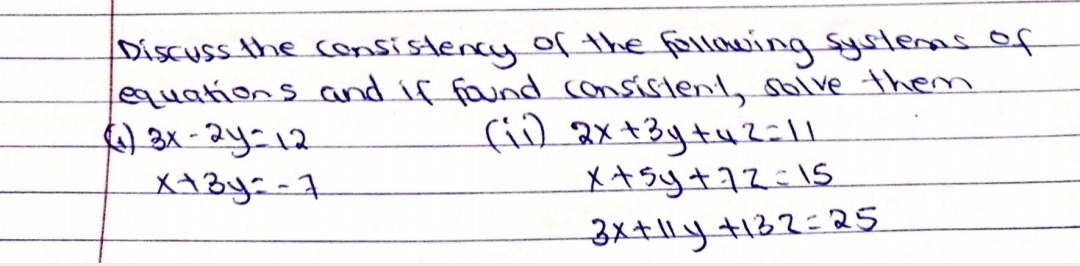 Discuss the consistency of the following systems of
equations and if found consistent, solve them
(i) 3x-2y=12 (ii) 2x+3y+4z=11
x+3y=-7 x+5y+7z=15
3x+11y+13z=25